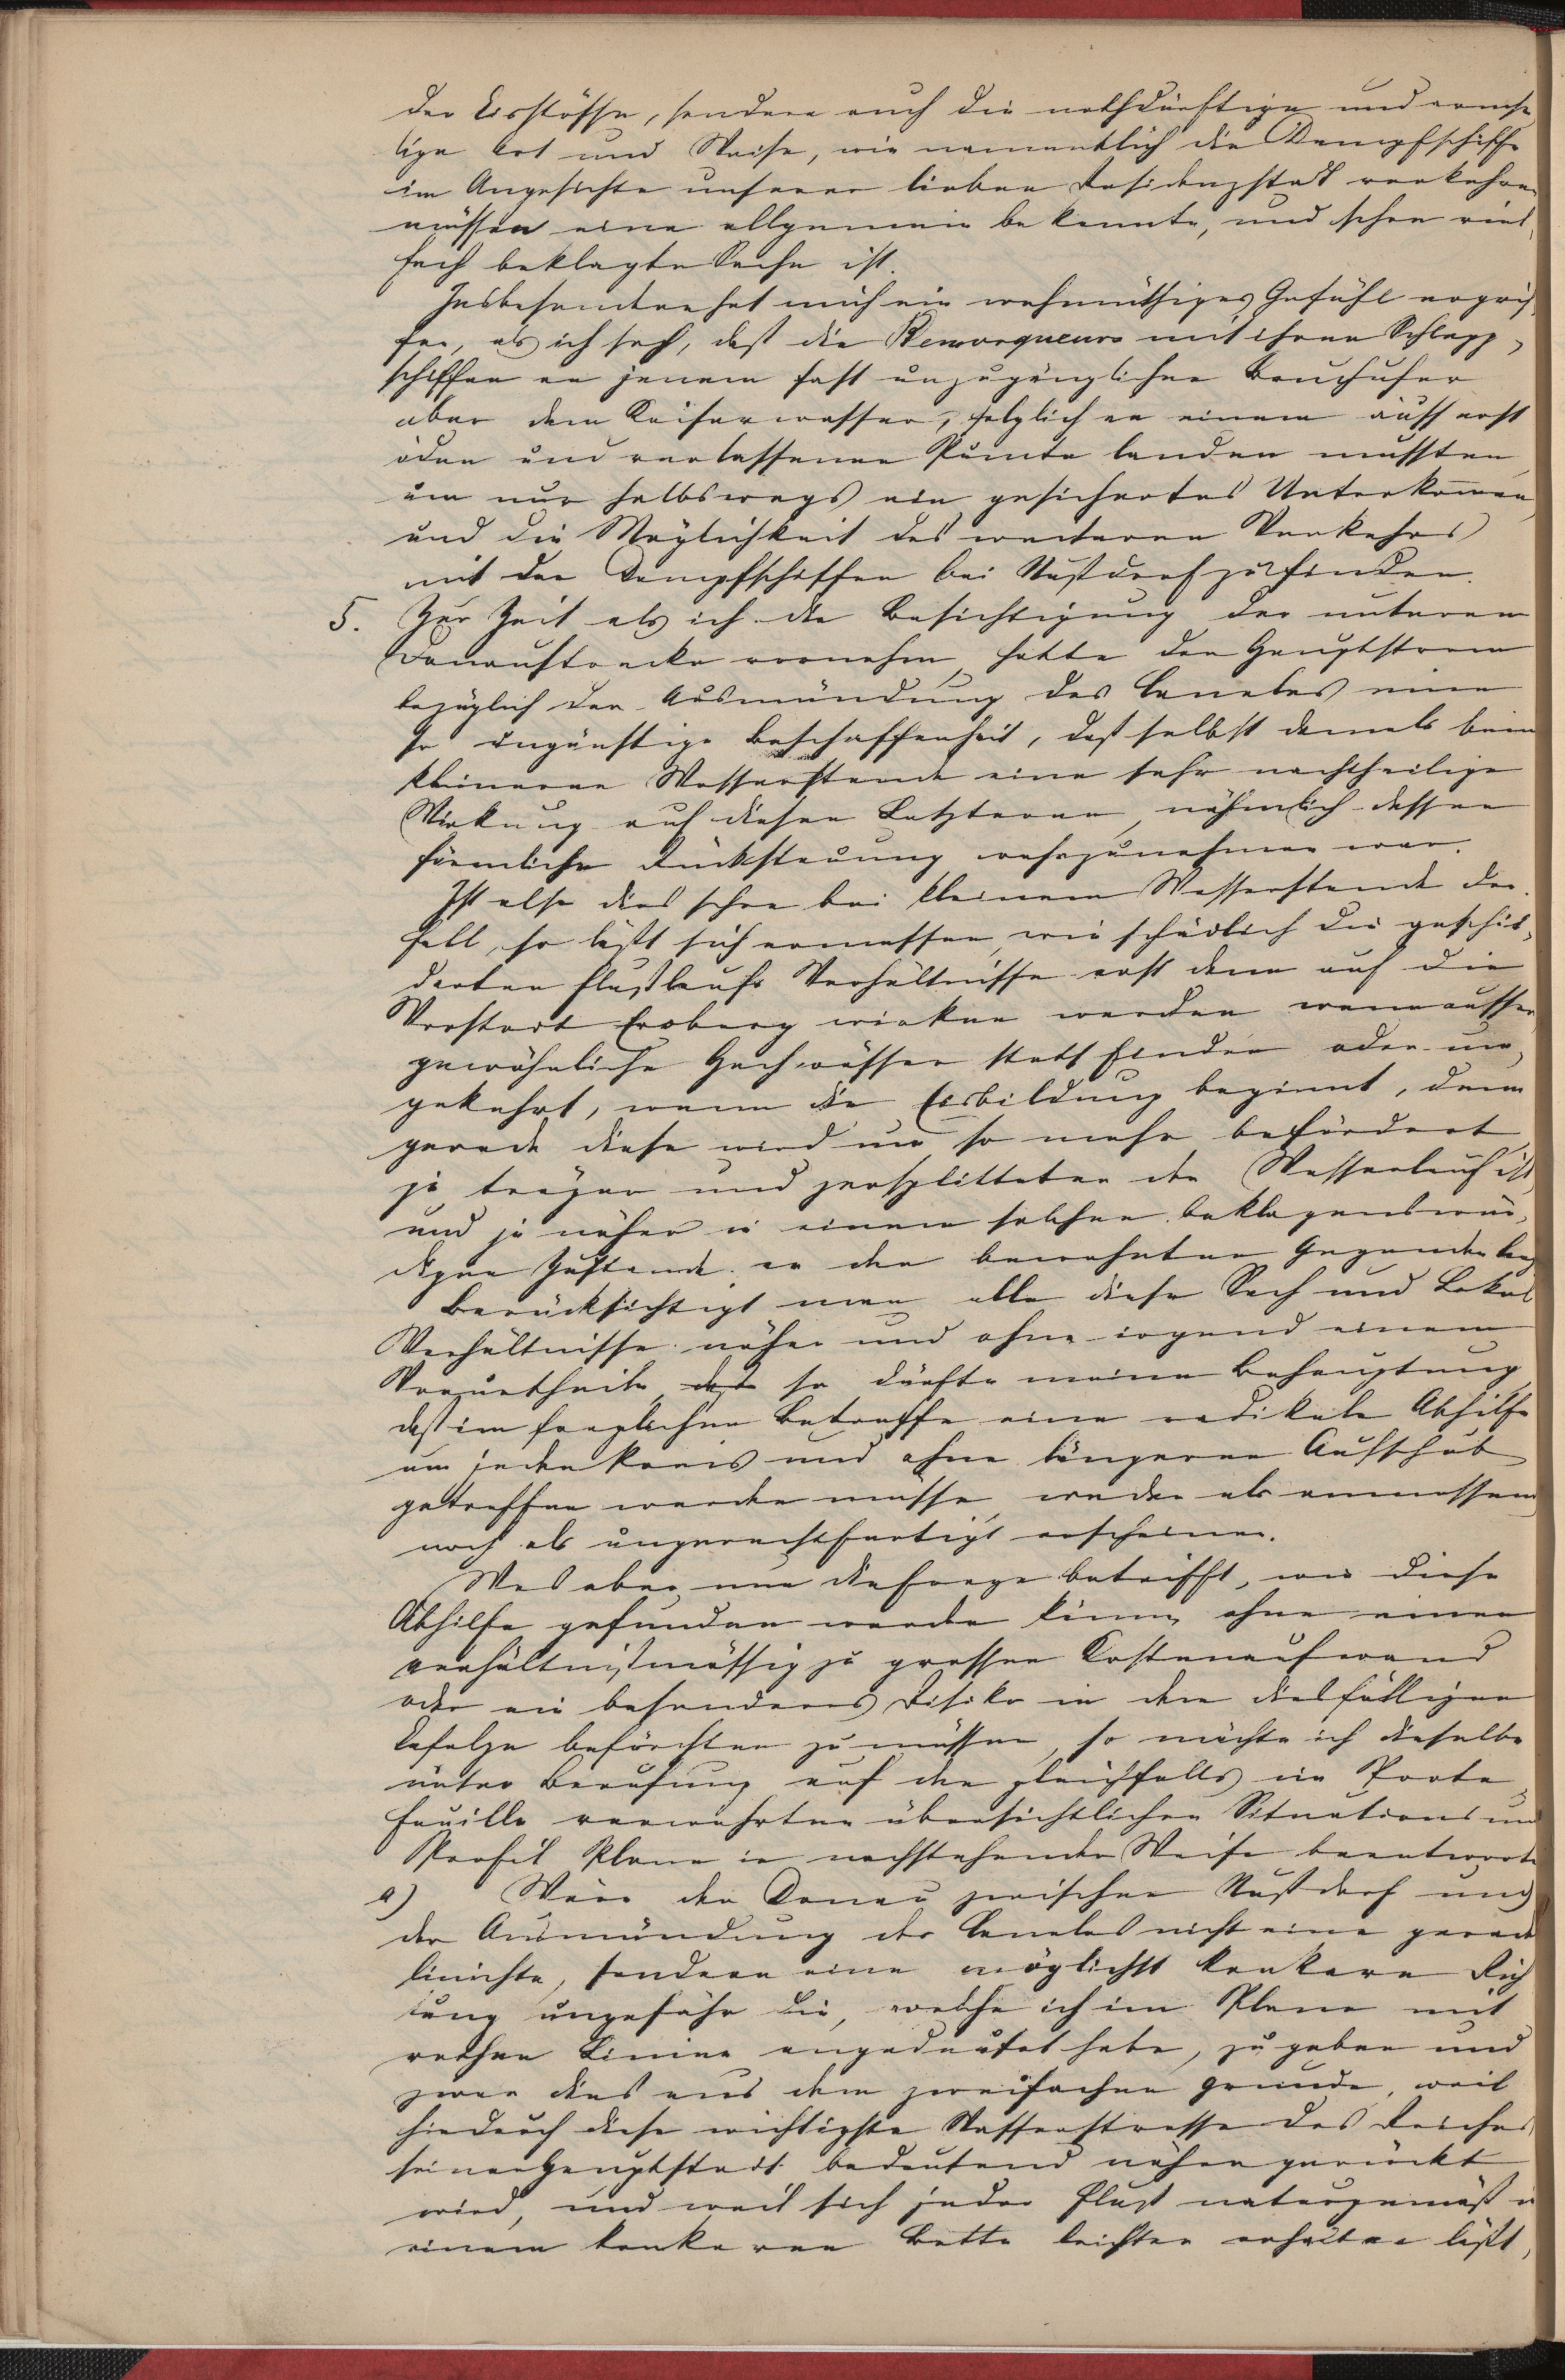 der Eisstösse, sondern auch die nothdürftige und armse
lige Art und Weise, wie namentlich die Dampfschiffe
im Angesichte unserer lieben Residenzstadt verkehren
müssen eine allgemein bekannte, und schon viel
fach beklagte Sache ist.
Insbesondere hat mich ein wehmüthiges Gefühl ergrif
fen, als ich sah, daß die Remorqueurs mit ihren Schlepp
schiffen an jenem fast unzugänglichen Bruchufer
ober dem Kaiserwasser, folglich an einem äusserst
öden und verlassenen Punkte landen mussten
um nur halbswegs ein gesichertes Unterkommen
und die Möglichkeit des weiteren Verkehrs
mit den Dampfschiffen bei Nußdorf zu finden.
5. Zur Zeit als ich die Besichtigung der unteren
Donaustrecke vornahm, hatte der Hauptstrom
bezüglich der Ausmündung des Canales eine
so ungünstige Beschaffenheit, daß selbst damals beim
kleineren Wasserstande eine sehr nachtheilige
Wirkung auf diesen Letzteren, nähmlich dessen
förmliche Rückstauung wahrzunehmen war.
Ist also dies schon bei kleinem Wasserstande der
Fall, so läßt sich ermessen, wie schädlich die geschil
derten Flußlaufs Verhältnisse erst dann auf die
Vorstadt Erdberg wirken werden wenn ausser
gewöhnliche Hochwässer statt finden oder um
gekehrt, wenn die Eisbildung beginnt, denn
gerade diese wird um so mehr befördert
je träger und zersplitteter der Wasserlauf ist,
und je näher in einem solchen beklagenswür
digen Zustande er den bewohnten Gegenden liegt
Berücksichtigt man alle diese Sach und Lokal
Verhältnisse näher und ohne irgend einem
Vorurtheile, so dürfte meine Behauptung
daß im fraglichen Betreffe eine radikale Abhilfe
um jeden Preis und ohne längeren Aufschub
getroffen werden müsse, weder als anmassend
noch als ungerechtfertigt erscheinen.
Was aber nun die Frage betrifft, wie diese
Abhilfe gefunden werden könne ohne einen
verhältnißmässig zu grossen Kostenaufwand
oder ein besonderes Risiko in dem diesfälligen
Erfolge befürchten zu müssen, so möchte ich dieselbe
unter Berufung auf den gleichfalls im Porte
feuille verwahrten übersichtlichen Situations und
Profil Plane in nachstehender Weise beantworten
a) Wäre der Donau zwischen Nußdorf und
der Ausmündung des Canales nicht eine gerad
linichte, sondern eine möglichst konkave Rich
tung ungefähr die, welche ich im Plane mit
rothen Linien angedeutet habe, zu geben und
zwar dies aus dem zweifachen Grunde, weil
hiedurch diese wichtigste Wasserstrasse des Reiches
seiner Hauptstadt bedeutend näher gerückt
wird, und weil sich jeder Fluß naturgemäß in
einem konkaven Bette leichter erhalten läßt,